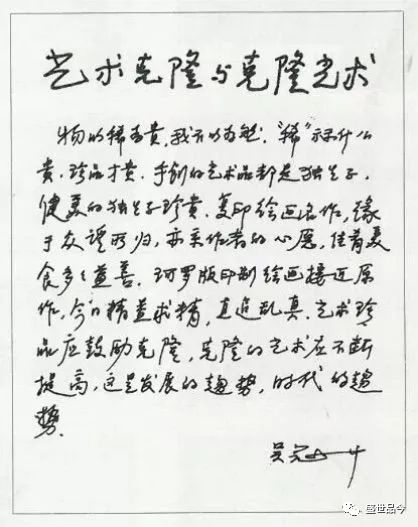 艺术克隆与克隆艺术
物以稀为贵,我不以为然:“稀”什么
贵,珍品才贵.手创的艺术品都是独生子,
健美的独生子珍贵.复印绘画名作,缘
于众望所归,亦系作者的心愿,佳肴美
食多多益善.珂罗版印制绘画接近原
作,今日精益求精,直追乱真.艺术珍
品应鼓励克隆,克隆的艺术应不断
提高,这是发展的趨势,时代的趨
势.
吴冠中
盛世品今